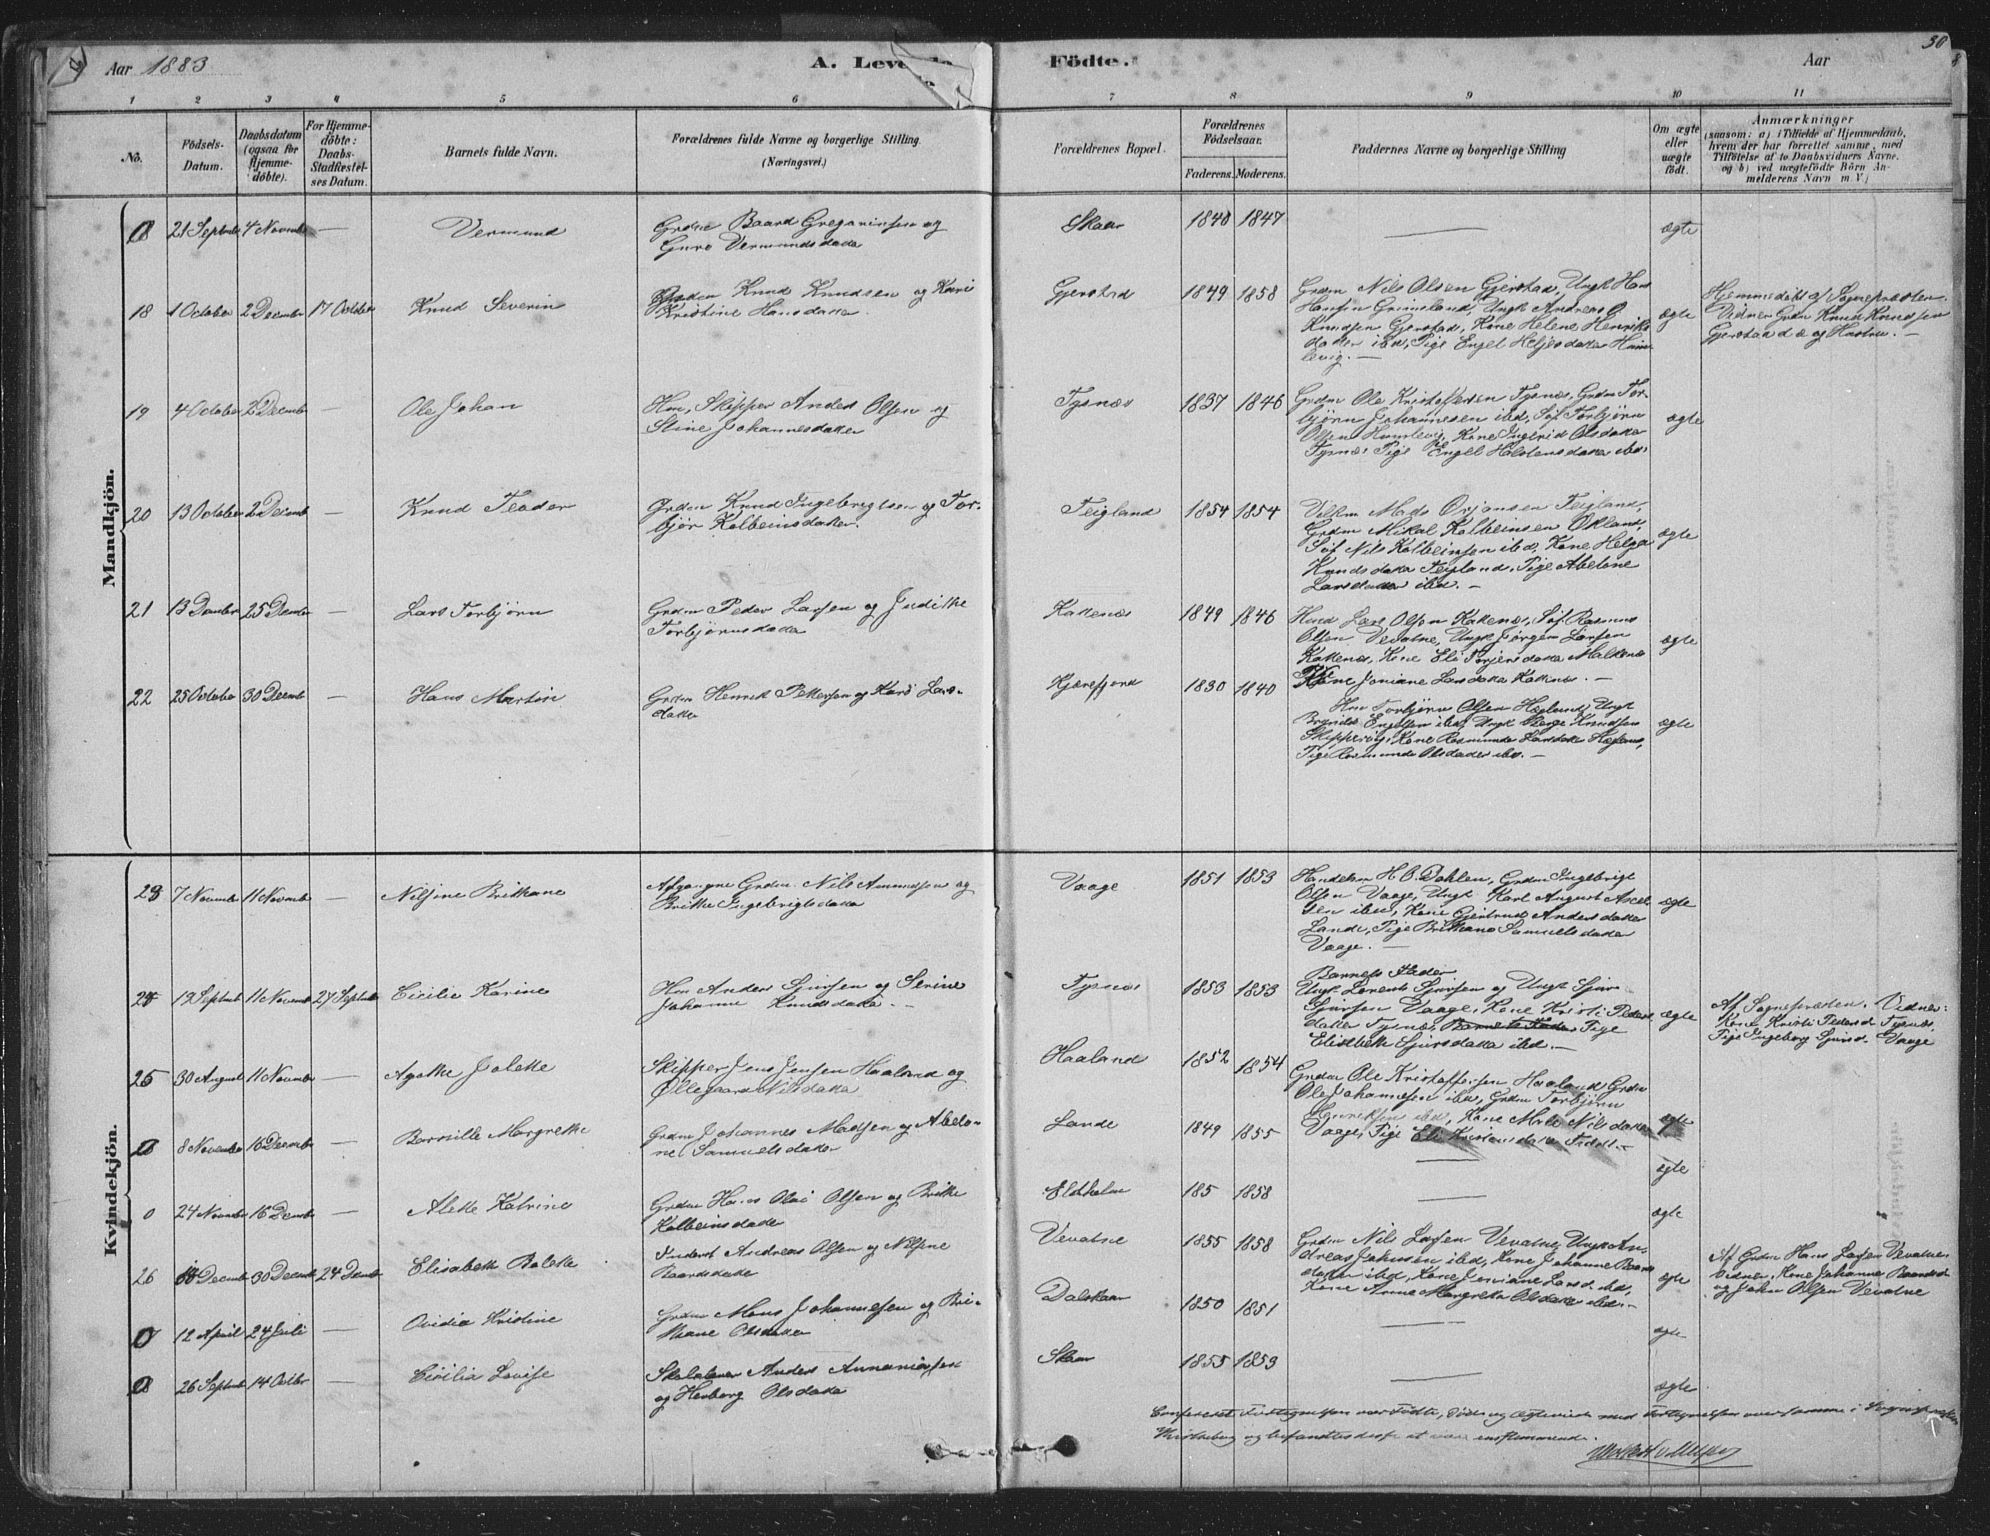 Aar 1883
A. Levende
Födte.
Aar
30
1 2 3 4 5 6 7 8 9 10 11
No.
Födsels-Datum.
Daabsdatum (ogsaa for Hjemme-döbte).
For Hjemme-döbte: Daabs-Stadfæstel-ses Datum.
Barnets fulde Navn.
Forældrenes fulde Navne og borgerlige Stilling
(Næringsvei.)
Forældrenes Bopæl.
Forældrenes Födselsaar.
Faderens. Moderens.
Faddernes Navne og borgerlige Stilling
Om ægte eller uægte födt.
Anmærkninger
(saasom: a) i Tilfælde af Hjemmedaab,
hvem der har forrettet samme, med
Tilföielse af to Daabsvidners Navne.
og b) ved uægtefödte Börn An-
melderens Navn m. V.)
Mandkjön.
0 21 Septbr 4 Novembr — Vermund
Grdm Baard Gregoriusen og
Guro Vermundsdatter
Skaar 1840 1847 — ægte
18 1 October 2 Decembr 17 October Knud Severin
Grdm Knud Knudsen og Kari
Kristine Hansdatter.
Gjerstad 1849 1858
Grdm Nils Olsen Gjerstad, Ungk Hans
Hansen Grimsland, Ungk Andreas O
Knudsen Gjerstad, Kone Helene Henriks
datter ibd, Pige Engel Heljesdatter Hum
levig. —
ægte
Hjemmedöbt af Sognepræsten.
Vidner Grdm Knud Knudsen
Gjerstad d æ og Hustru. —
19 4 October 2 Decembr — Ole Johan
Hm, Skipper Anders Olsen og
Stine Johannesdatter
Tysnæs 1837 1846
Grdm Ole Kristoffersen Tysnæs, Grdm Tor-
bjørn Johannesen ibd, Søf Torbjørn
Olsen Humlevig, Kone Ingerid Olsdatter
Tysnæs Pige Engel Halstensdatter ibd.
ægte
20 13 October 2 Decemb — Knud Teodor
Grdm Knud Ingebrigtsen og Tor-
bjør Kolbeinsdatter.
Teigland 1854 1854
Mads Orjansen Teigland,
Grdm Mikal Kolbeinsen Økland,
Søf Nils Kolbeinsen ibd, Kone Helga
Knudsdatter Teigland, Pige Abelone
Larsdatter ibd. —
ægte
21 13 25 Decbr — Lars Torbjørn
Grdm Peder Larsen og Judithe
Torbjørnsdatter
Kaldenæs 1849 1846
Lars Olsen Kaldenæs, Søf Rasmus
Olsen Vevatne, Ungk Jørgen Larsen
Kaldenæs, Kone Eli Torjersdatter Malkenæs
Pige Joniane Larsdatter Kaldenæs. —
ægte
22 25 October 30 Decemb — Hans Martin
Grdm Henrik Pettersen og Kari Lars-
datter
Kjærefjord 1830 1840
Hm Torbjørn Olsen Høglund, Ungk
Engelsen ibd, Ungk Børge Knudsen
Skippervig, Kone Rasmunde Larsdatter
Pige Rasmunde Olsdatter ibd. —
ægte
Kvindekjön.
23 7 Novembr 11 Novembr — Nilsine Brithane
Afgangne Grdm. Nils Amundsen og
Brithe Ingebrigtsdatter
Vaage 1851 1853
Handelsm H. O. Dahlen, Grdm Ingebrigt
Olsen Vaage, Ungk Karl August Axel
sen ibd, Kone Gjertrud Andersdatter
Lande, Pige Brithane Samuelsdatter
Vaage. —
ægte
24 19 Septemb 11 Novemb 27 Septbr Cicilie Karine
Hm Anders Sjursen og Serine
Johanne Knudsdatter. —
Tysnæs 1853 1853
Barnets Fader
Ungk Lorents Sjursen og Ungk Sjur
Sjursen Vaage, Kone Kristi Peders
datter Tysnæs, Barnets Fader, Pige
Elisbeth Sjursdatter ibd. —
ægte
Af Sognepræsten. Vidner:
Kone Kristi Pedersd Tysnæs,
Pige Ingeborg Sjursd. Vaage
25 30 August 11 Novembr — Agathe Jolette
Skipper Jens Jensen Haaland og
Øllegaard Nilsdatter
Haaland 1852 1854
Grdm Ole Kristoffersen Haaland, Grdm
Ole Johannesen ibd, Grdm Torbjørn
Henriksen ibd, Kone Marte Nilsdatter
Vaage, Pige Eli Kristensdatter
ægte
0 8 November 16 Decemb — Borsille Margrethe
Grdm Johannes Madsen og Abelo-
ne Samuelsdatter
Lande 1849 1855 — ægte
0 24 Novembr 16 Decembr — Alette Katrine
Grdm Hans Olai Olsen og Brithe
Kolbeinsdatter
Eldholm 185 1858 — ægte
26 Decembr 30 Decemb 24 Decemb Elisabeth Bolette
Inderst Andreas Olsen og Nilsine
Baardsdatter
Vevatne 1855 1858
Grdm Nils Larsen Vevatne, Ungk An-
dreas Jakobsen ibd, Kone Johanne Baards
datter ibd, Kone Joniane Larsd. ibd,
Kone Anne Margrete Olsdatter ibd. —
ægte
Af Grdm Hans Larsen Vevatne
Vidner, Kone Johanne Baardsd
og John Olsen Vevatne
0 12 April 24 Juli — Ovidia Kristine
Grdm Mons Johannesen og Bri-
thane Olsdatter
Dalskaar 1850 1851 — ægte
0 26 Septembr 14 Octbr — Cicilia Lovise
Skolelærer Anders Annaniassen
og Herborg Olsdatter
Skaar 1855 1853 — ægte
Conferert Fortegnelsen over Fødte, Døde og Ægteviede med Fortegnelsen over samme i
og befandtes disse at være enstemmende.